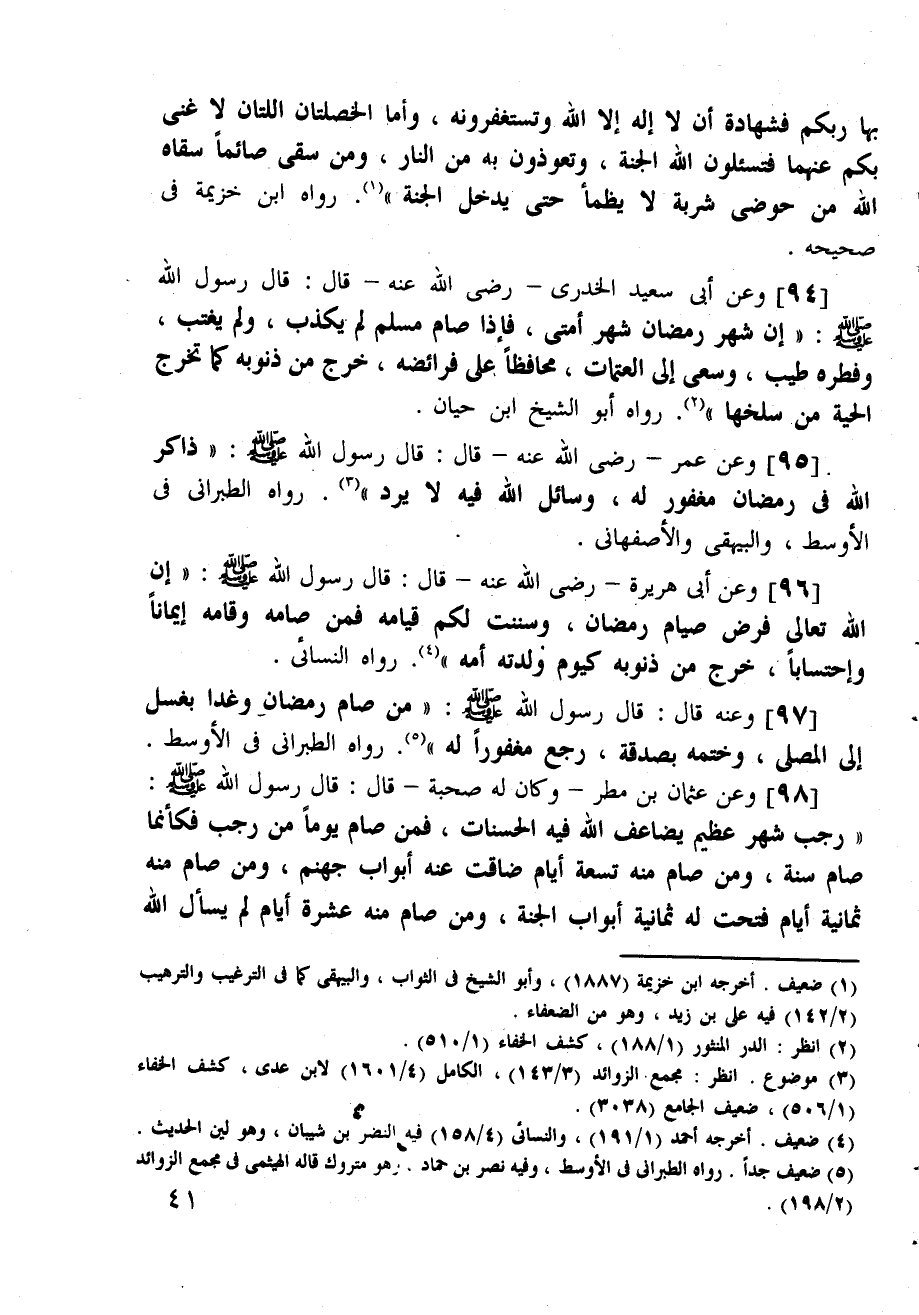 بها ربكم فشهادة أن لا إله إلا الله وتستغفرونه ، وأما الخصلتان اللتان لا غنى
بكم عنهما فتسئلون الله الجنة ، وتعوذون به من النار ، ومن سقى صائماً سقاه
الله من حوضى شربة لا يظمأ حتى يدخل الجنة »(١). رواه ابن خزيمة فى
صحيحه .
[٩٤] وعن أبى سعيد الخدرى – رضى الله عنه – قال : قال رسول الله
ﷺ : « إن شهر رمضان شهر أمتى ، فإذا صام مسلم لم يكذب ، ولم يغتب ،
وفطره طيب ، وسعى إلى العتمات ، محافظاً على فرائضه ، خرج من ذنوبه كما تخرج
الحية من سلخها »(٢). رواه أبو الشيخ ابن حيان .
[٩٥] وعن عمر – رضى الله عنه – قال : قال رسول الله ﷺ : « ذاكر
الله فى رمضان مغفور له ، وسائل الله فيه لا يرد »(٣) . رواه الطبرانى فى
الأوسط ، والبيهقى والأصفهانى .
[٩٦] وعن أبى هريرة – رضى الله عنه – قال : قال رسول الله ﷺ : « إن
الله تعالى فرض صيام رمضان ، وسننت لكم قيامه فمن صامه وقامه إيماناً
وإحتساباً ، خرج من ذنوبه كيوم ولدته أمه »(٤). رواه النسائى .
[٩٧] وعنه قال : قال رسول الله ﷺ : « من صام رمضان وغدا بغسل
إلى المصلى ، وختمه بصدقة ، رجع مغفوراً له »(٥). رواه الطبرانى فى الأوسط .
[٩٨] وعن عثمان بن مطر – وكان له صحبة – قال : قال رسول الله ﷺ :
« رجب شهر عظيم يضاعف الله فيه الحسنات ، فمن صام يوماً من رجب فكأنما
صام سنة ، ومن صام منه تسعة أيام ضاقت عنه أبواب جهنم ، ومن صام منه
ثمانية أيام فتحت له ثمانية أبواب الجنة ، ومن صام منه عشرة أيام لم يسأل الله
(١) ضعيف . أخرجه ابن خزيمة (١٨٨٧) ، وأبو الشيخ فى الثواب ، والبيهقى كما فى الترغيب والترهيب
(١٤٢/٢) فيه على بن زيد ، وهو من الضعفاء .
(٢) انظر : الدر المنثور (١٨٨/١) ، كشف الخفاء (٥١٠/١) .
(٣) موضوع . انظر : مجمع الزوائد (١٤٣/٣) ، الكامل (١٦٠١/٤) لابن عدى ، كشف الخفاء
(٥٠٦/١) ، ضعيف الجامع (٣٠٣٨) .
(٤) ضعيف . أخرجه أحمد (١٩١/١) ، والنسائى (١٥٨/٤) فيه النضر بن شيبان ، وهو لين الحديث .
(٥) ضعيف جداً . رواه الطبرانى فى الأوسط ، وفيه نصر بن حماد . وهو متروك قاله الهيثمى فى مجمع الزوائد
(١٩٨/٢) .
٤١